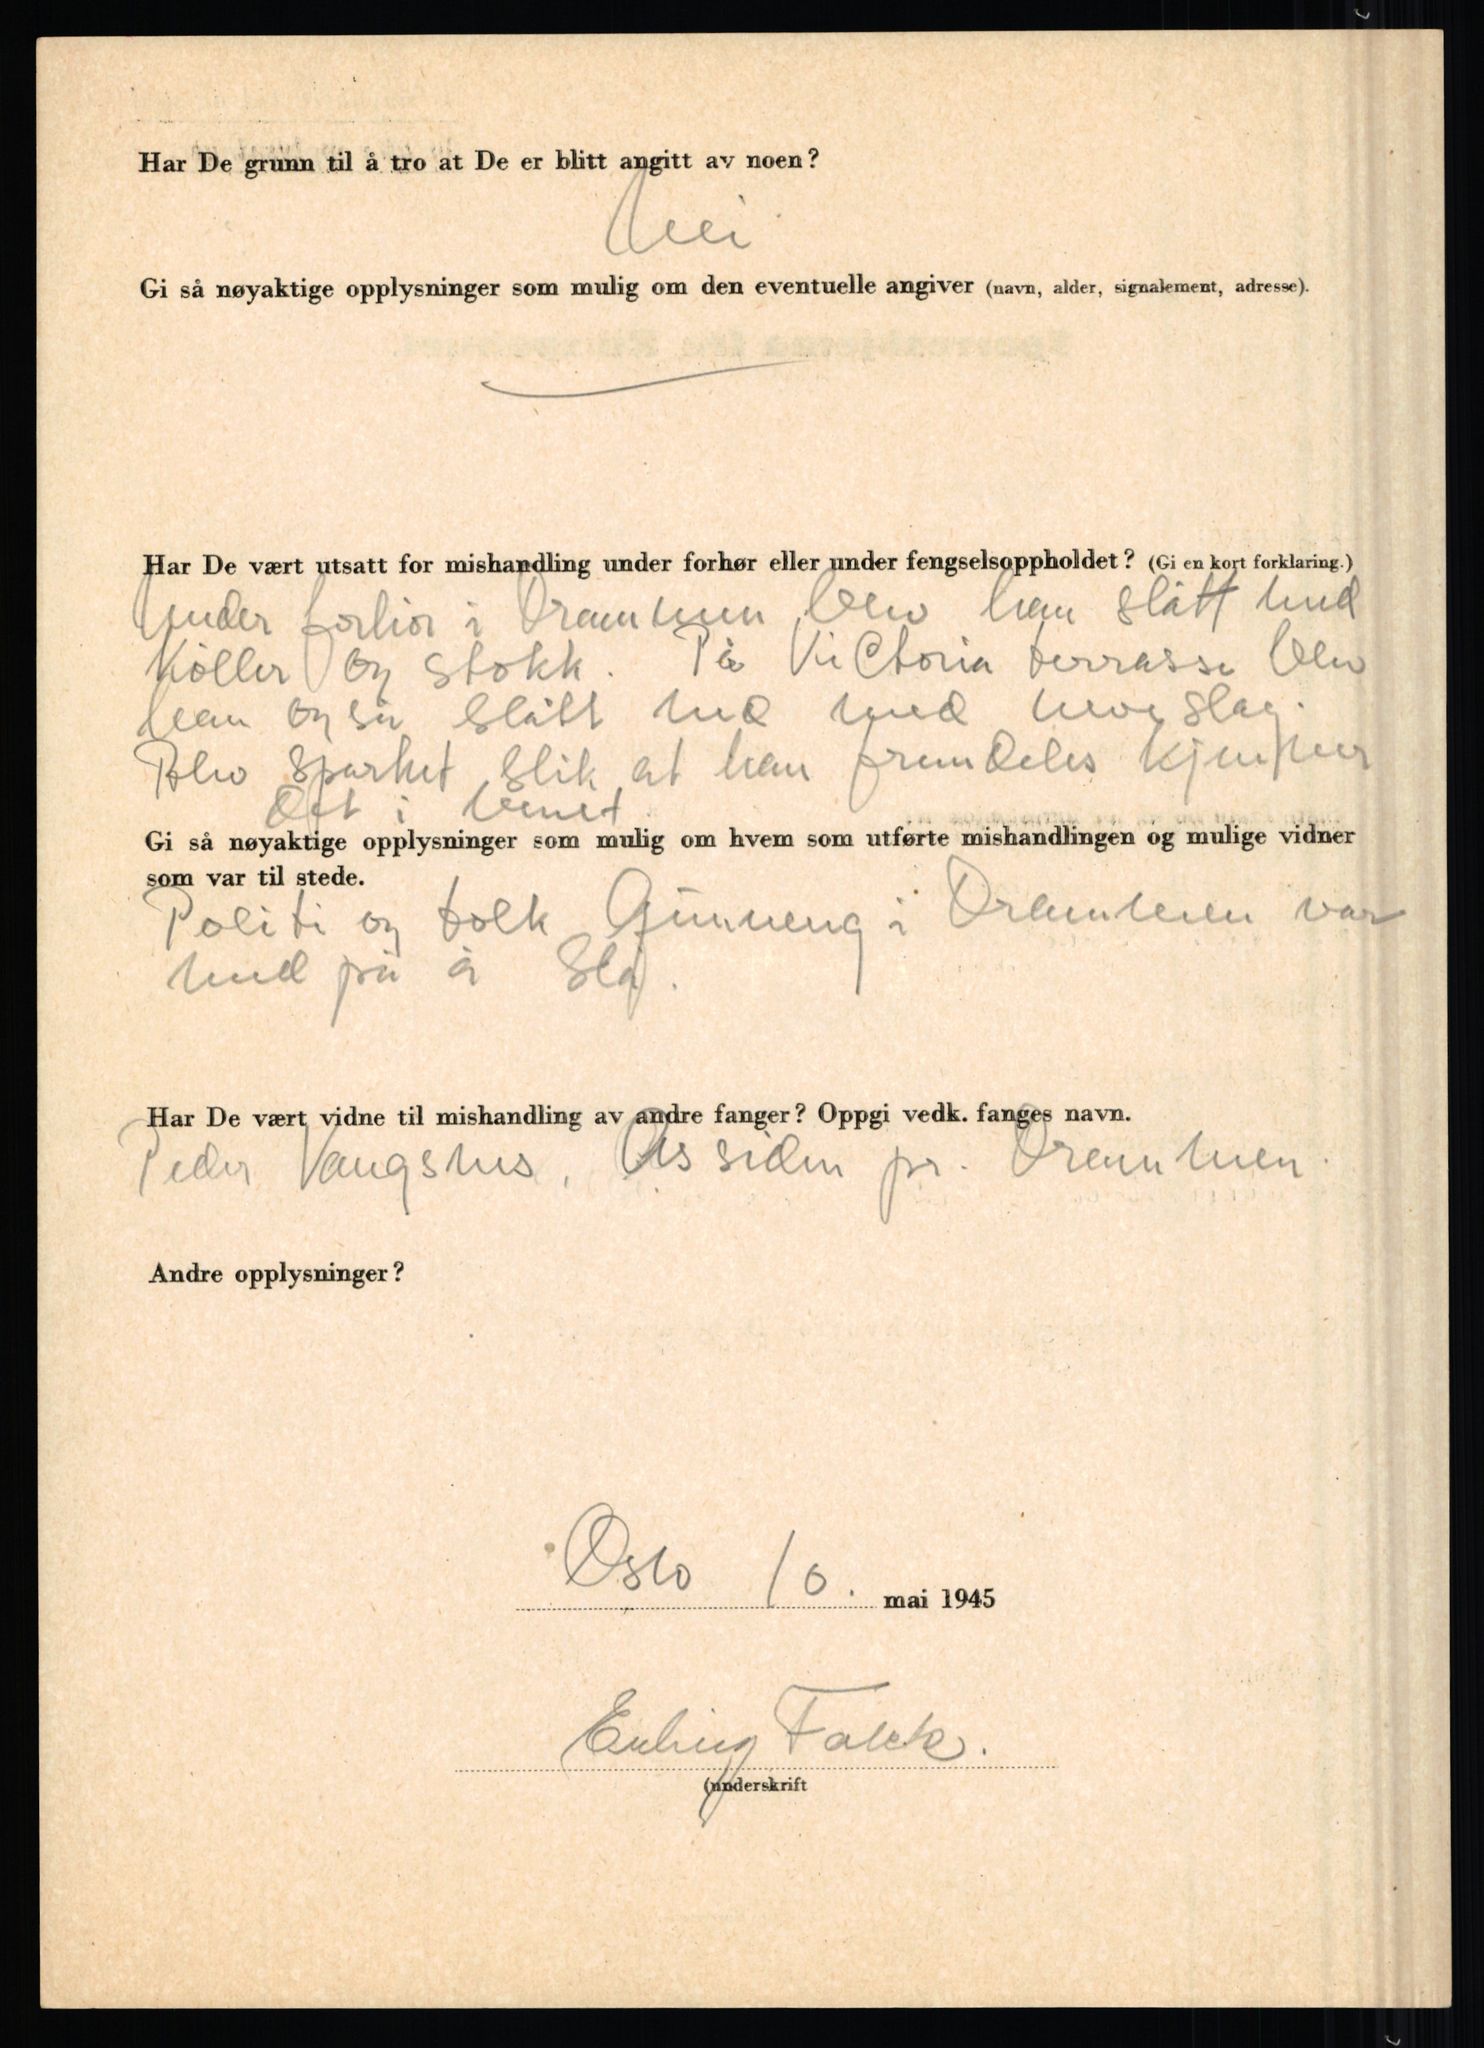 Har De grunn til å tro at De er blitt angitt av noen?
Nei
Gi så nøyaktige opplysninger som mulig om den eventuelle angiver (navn, alder, signalement, adresse).
Har De vært utsatt for mishandling under forhør eller under fengselsoppholdet? (Gi en kort forklaring.)
Under forhør i Drammen blev han slått med
køller og stokk. På Victoria terrasse blev
han også slått ned med neveslag.
Blev sparket slik at han fremdeles kjenner
det i benet.
Gi så nøyaktige opplysninger som mulig om hvem som utførte mishandlingen og mulige vidner
som var til stede.
Politi og tolk i Drammen var
med på å slå.
Har De vært vidne til mishandling av andre fanger? Oppgi vedk. fanges navn.
Peder Vangsnes, Åssiden pr. Drammen.
Andre opplysninger?
Oslo 10. mai 1945
Erling Falck.
(underskrift